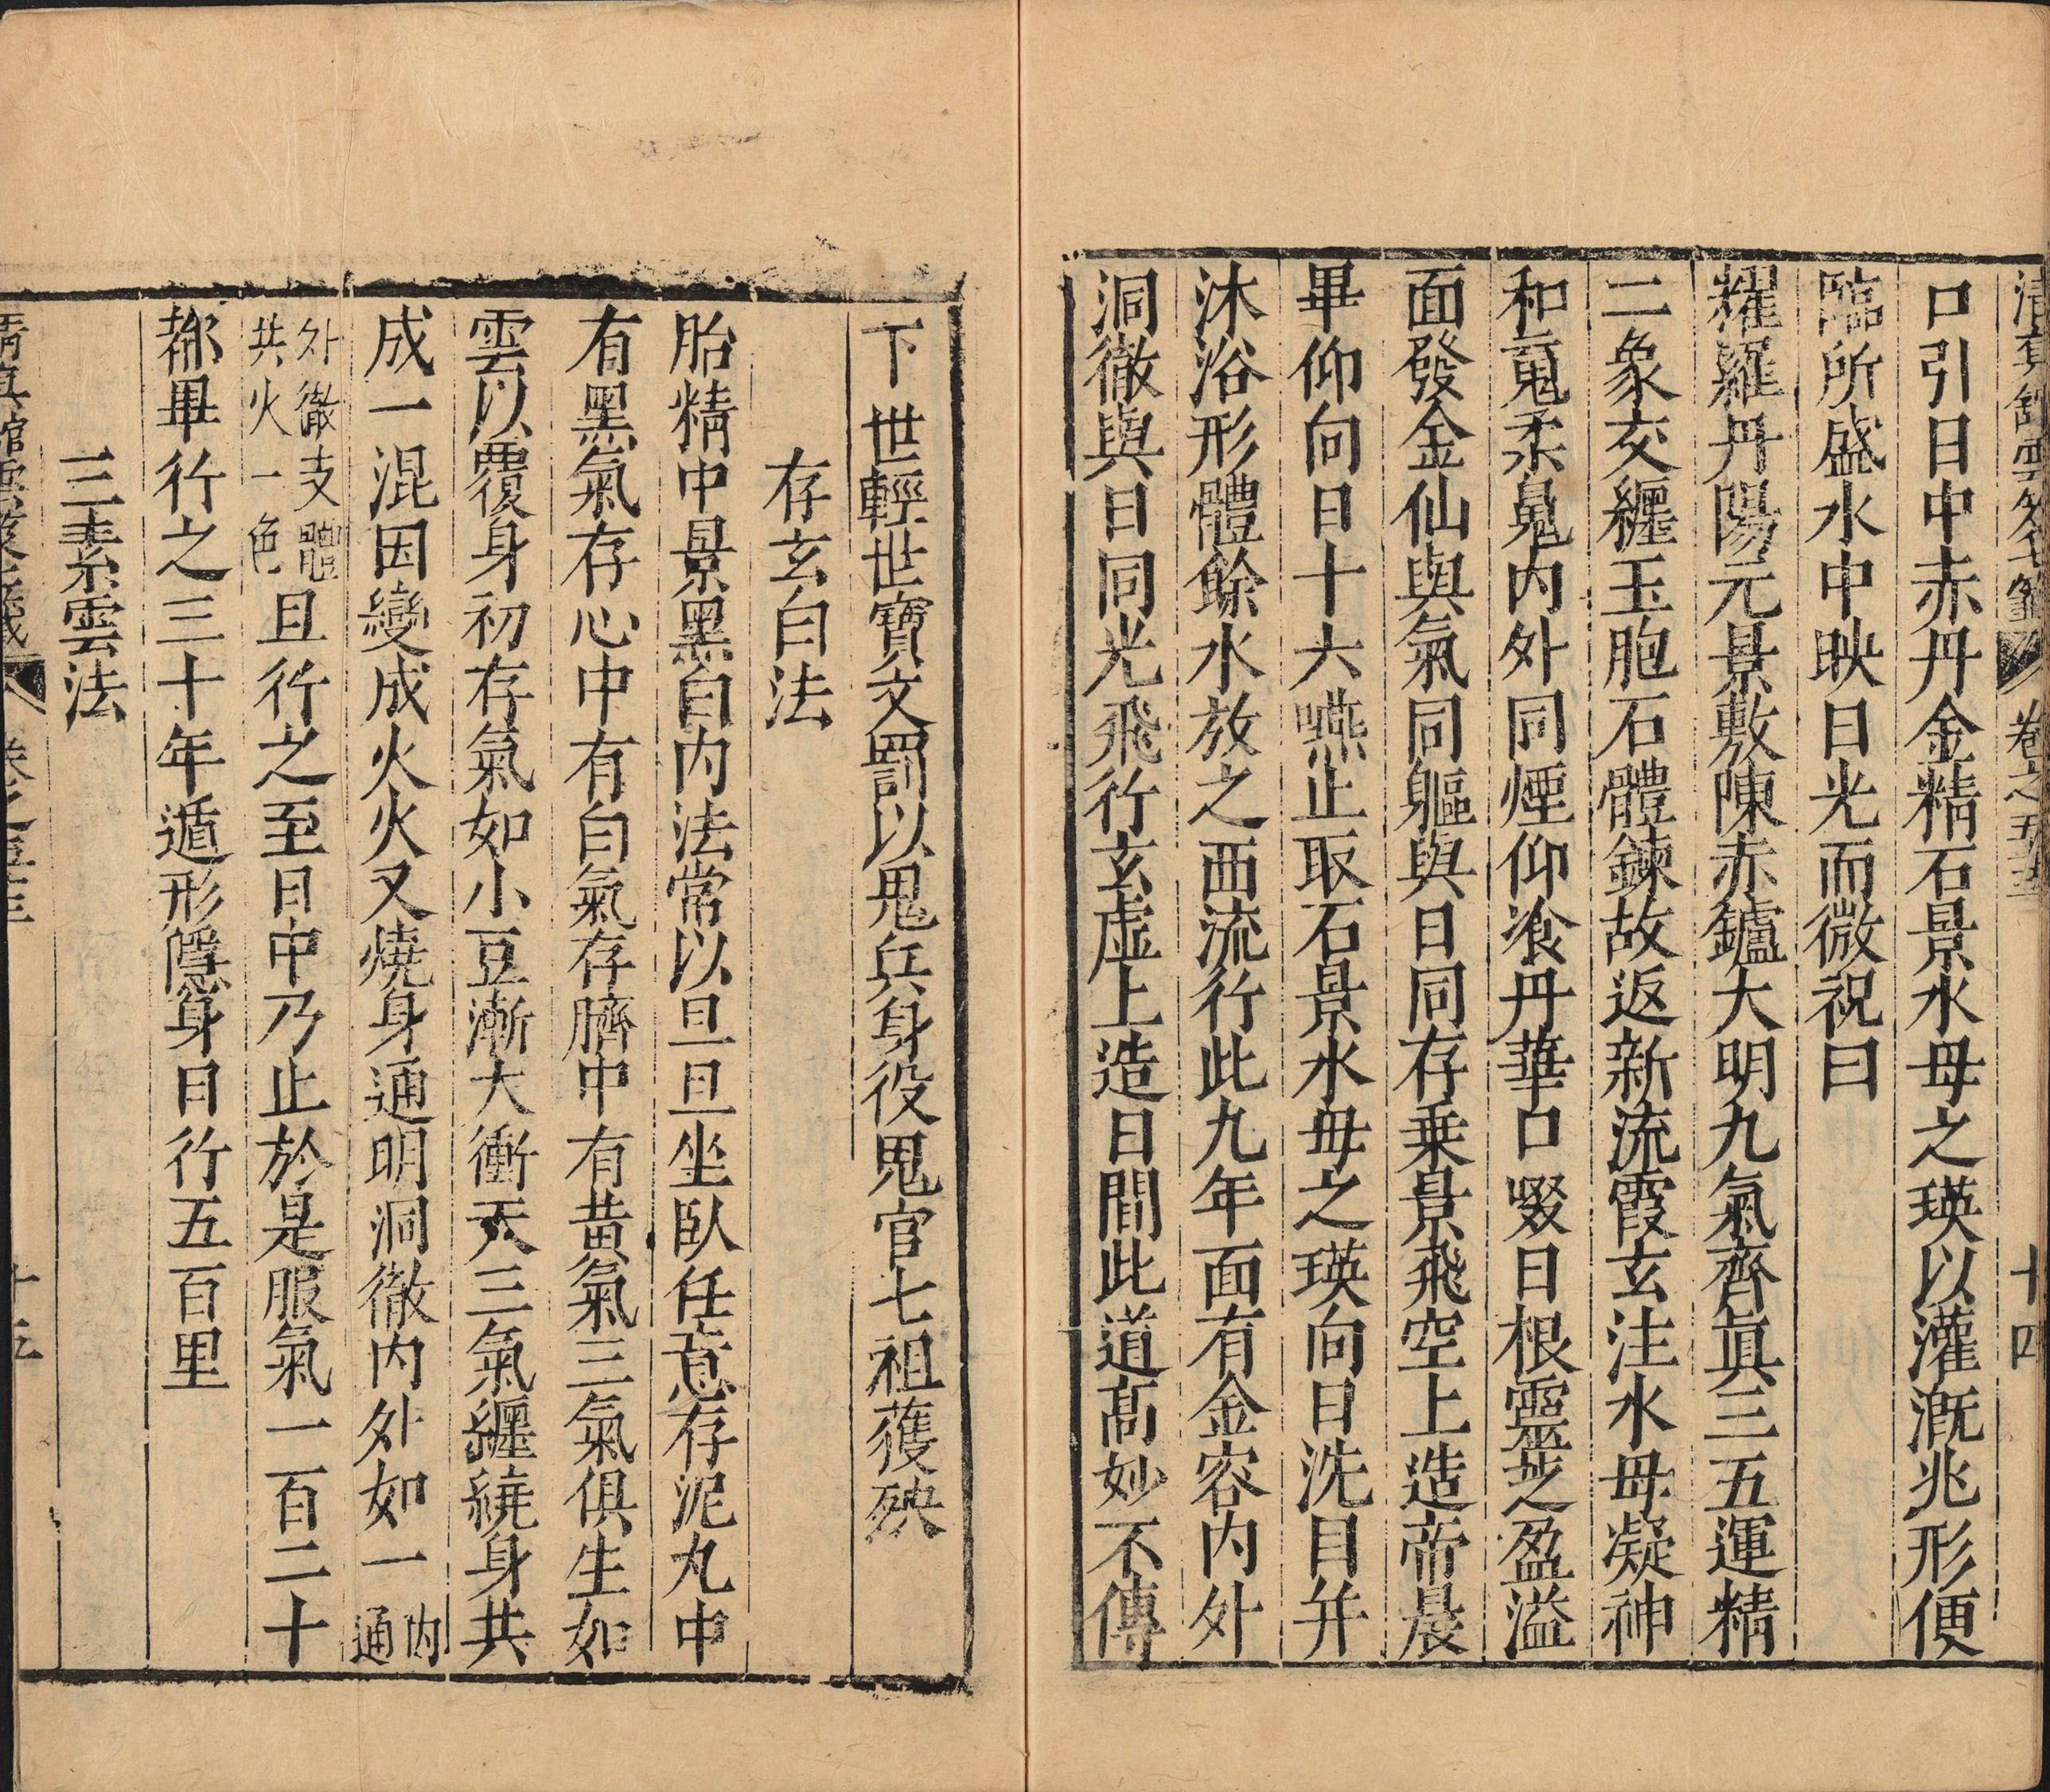 清真館雲笈七籤 卷之五十三 十四
口引日中赤丹金精石景水母之瑛以灌漑兆形便
臨所盛水中映日光而微祝曰
耀羅丹陽元景敷陳赤鑪大明九氣齊眞三五運精
二象交纏玉胞石體鍊故返新流霞玄注水母凝神
和䰟柔魄内外同煙仰飡丹華口啜日根靈芝盈溢
面發金仙與氣同軀與日同存乗景飛空上造帝晨
畢仰向日十六嚥止取石景水毋之瑛向日洗目并
沐浴形體餘水放之西流行此九年面有金容内外
洞徹與日同光飛行玄虛上造日間此道髙妙不傳
下世輕世寶文罰以鬼兵身役鬼官七祖獲殃
存玄白法
胎精中景黑白内法常以旦旦坐臥任意存泥丸中
有黑氣存心中有白氣存臍中有黄氣三氣俱生如
雲以覆身初存氣如小豆漸大衝天三氣纏繞身共
成一混因變成火火又燒身通明洞徹内外如一内通
外徹支體共火一色且行之至日中乃止於是服氣一百二十
都畢行之三十年遁形隱身日行五百里
三素雲法
清真館雲笈七籤 卷之五十三 十五